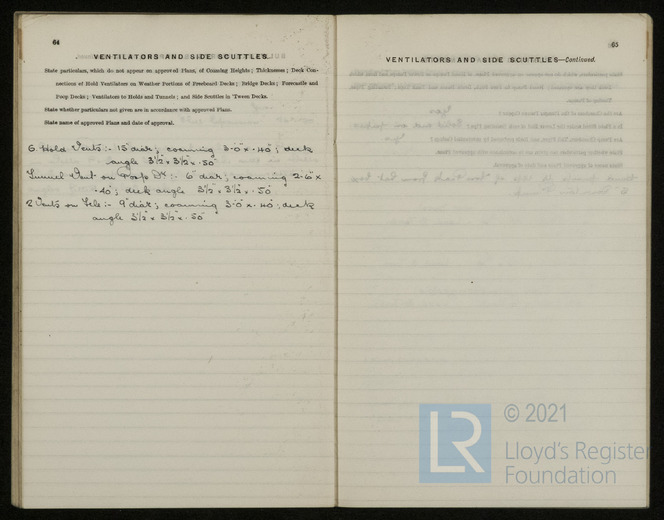 64
VENTILATORS AND SIDE SCUTTLES.
State particulars, which do not appear on approved Plans, of Coaming Heights; Thicknesses; Deck Con-
nections of Hold Ventilators on Weather Portions of Freeboard Decks; Bridge Decks; Forecastle and
Poop Decks; Ventilators to Holds and Tunnels; and Side Scuttles in 'Tween Decks.
State whether particulars not given are in accordance with approved Plans.
State name of approved Plans and date of approval.
6 Hold Vents:- 15" diar; coaming 3'-0" x .40"; deck
angle 3½ x 3½ x .50"
Tunnel Vent on Poop Dk:- 6" diar; coaming 2'-6" x
.40"; deck angle 3½" x 3½" x .50"
2 Vents on Fcle:- 9" diar; coaming 3'-0" x .40"; deck
angle 3½" x 3½" x .50"
65
VENTILATORS AND SIDE SCUTTLES—Continued.
LR
© 2021
Lloyd's Register
Foundation